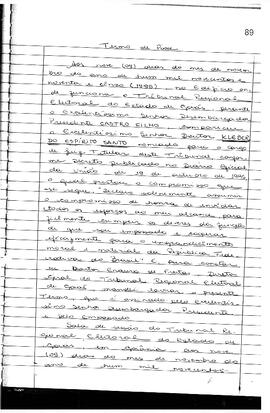 89
Termo de Posse
Aos nove (09) dias do mês de novem
bro do ano de hum mil novecentos e
noventa e cinco (1995), no Edifício em
que funciona o Tribunal Regional
Eleitoral do Estado de Goiás, presente
o Excelentíssimo Senhor Desembargador
Presidente CASTRO FILHO, compareceu
o Excelentíssimo Senhor Doutor KLEBER
DO ESPÍRITO SANTO nomeado para o cargo
de Juiz Titular deste Tribunal confor
me Decreto publicado no Diário Oficial
da União de 19 de outubro de 1995
o qual prestou o compromisso que
se segue:
o compromisso de honra de envidar
todos os esforços ao meu alcance para
fielmente cumprir os deveres do cargo
de que sou empossado e
eficazmente para o engrandecimento
moral e material da República Fede
rativa do Brasil. E para constar
eu Doutor de Freitas Diretor
Geral do Tribunal Regional Eleitoral
de Goiás, mandei lavrar o presente
Termo, que é assinado pelo Excelentís
simo Senhor Desembargador Presidente
e pelo Empossado.
Sala de sessão do Tribunal Re
gional Eleitoral do Estado de
Goiás, em Goiânia, aos nove
(09) dias do mês de novembro do
ano de hum mil novecentos